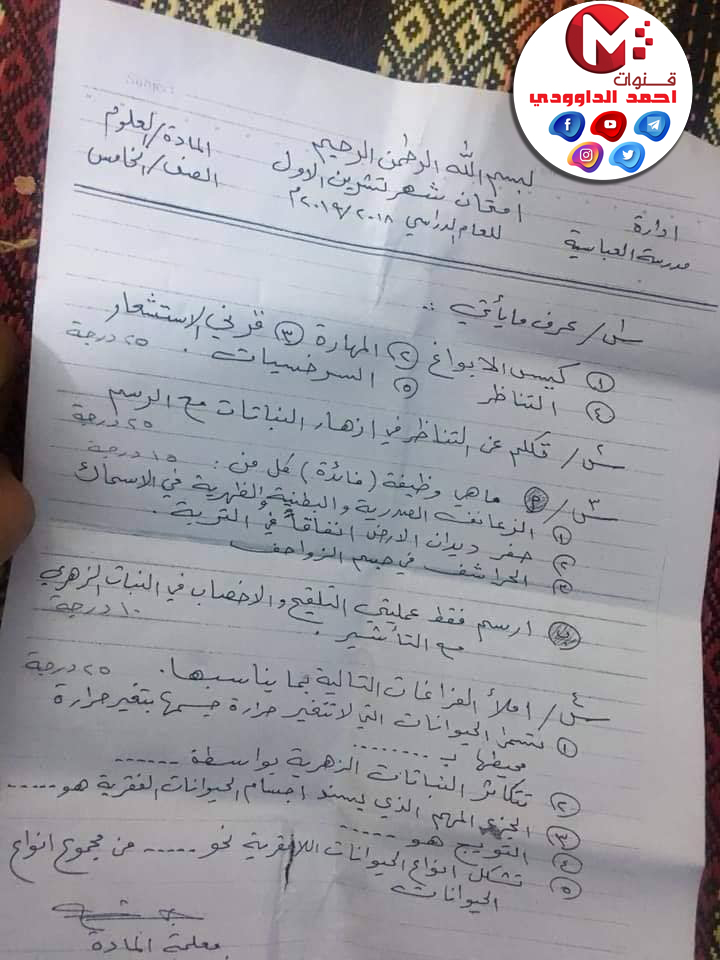 قنوات
احمد الداوودي
بسم الله الرحمن الرحيم
ادارة
مدرسة العباسية
امتحان شهر تشرين الاول
للعام الدراسي ٢٠١٨/٢٠١٩م
المادة/العلوم
الصف/الخامس
س١/ عرف ما يأتي :
① كيس الابواغ ② المهارة ③ قرني الاستشعار
④ التناظر ⑤ السرخسيات . ٢٥ درجة
س٢/ تكلم عن التناظر في ازهار النباتات مع الرسم
٢٥ درجة
س٣/ Ⓟ ماهي وظيفة (فائدة) كل من : ١٥ درجة
① الزعانف الصدرية والبطنية والظهرية في الاسماك
② حفر ديدان الارض انفاقاً في التربة .
③ الحراشف في جسم الزواحف
ب ارسم فقط عمليتي التلقيح والاخصاب في النبات الزهري
مع التأشير . ١٠ درجة
س٤/ املأ الفراغات التالية بما يناسبها . ٢٥ درجة
① تسمى الحيوانات التي لا تتغير حرارة جسمها بتغير حرارة
محيطها بـ ........
② تتكاثر النباتات الزهرية بواسطة ......
③ الجزء المهم الذي يسند اجسام الحيوانات الفقرية هو .....
④ التويج هو .....
⑤ تشكل انواع الحيوانات اللافقرية نحو ..... من مجموع انواع
الحيوانات
معلمة المادة